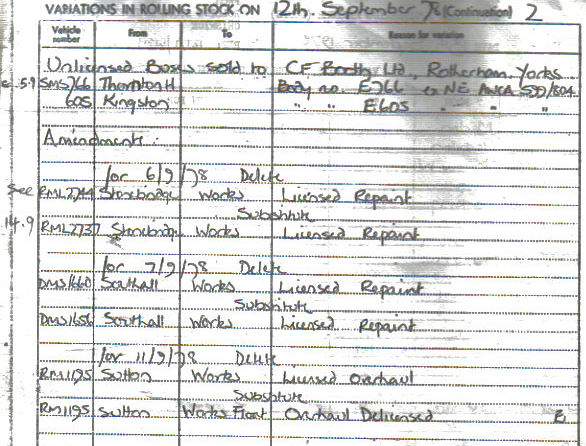 VARIATIONS IN ROLLING STOCK ON 12th. September 78 (Continuation) 2
Vehicle number From To Reason for variation
Unlicensed Buses Sold to CF Booth Ltd., Rotherham, Yorks
5.9 SMS766 Thornton H Body no. E766 ex NE
605 Kingston " " E605 " " "
Amendments:
for 6/9/78 Delete
See RML2744 Stonebridge Works Licensed Repaint
Substitute
14.9 RML2737 Stonebridge Works Licensed Repaint
for 7/9/78 Delete
DMS1660 Southall Works Licensed Repaint
Substitute
DMS1656 Southall Works Licensed Repaint
for 11/9/78 Delete
RM1195 Sutton Works Licensed Overhaul
Substitute
RM1195 Sutton Works Float Overhaul Delicensed